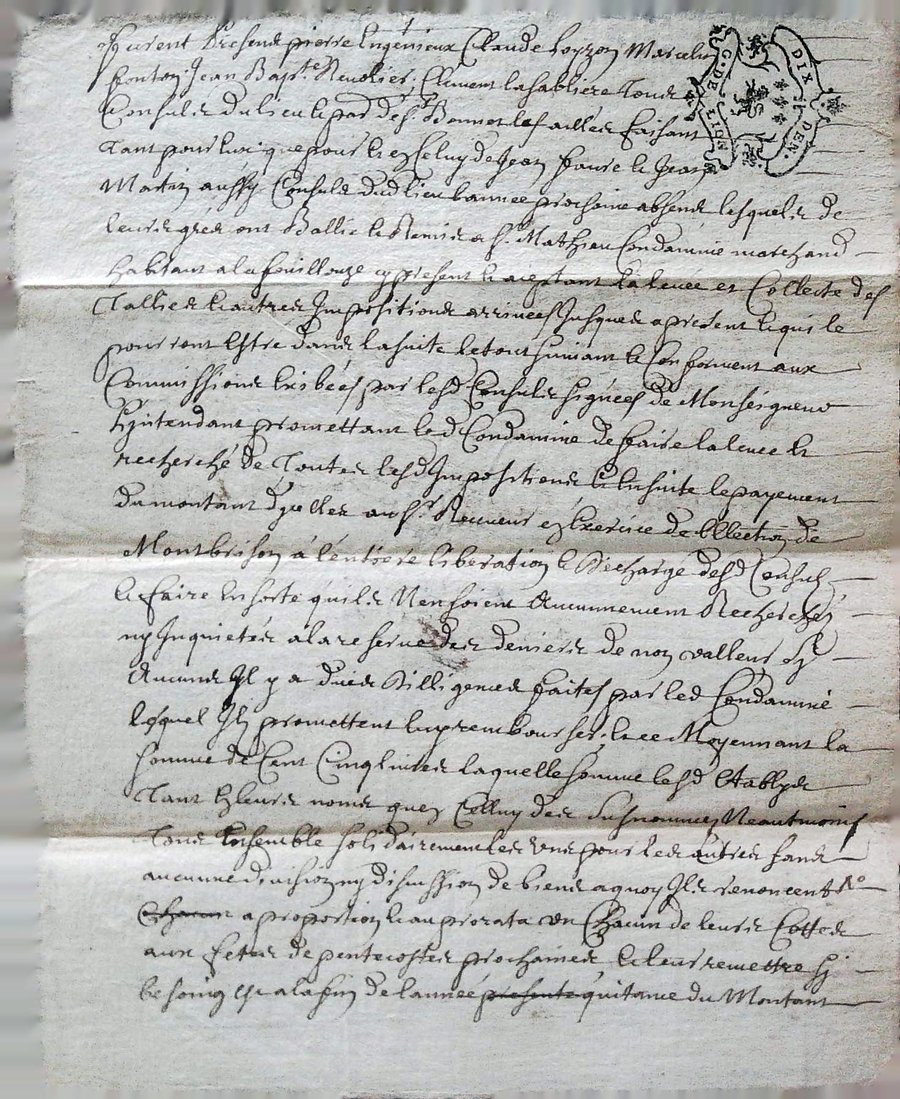 furent presens pierre Engenieux Claude Loyzon Marcelin
fonton Jean Bapt.te Reuolier, Clement Lasabliere Tous
Consuls du lieu & par de S.t Bonnet les oulles faisant
Tant pour luy que pour & celuy de Jean faure & Jean
Martin aussy Consuls dud lieu lannee prochaine absens lesquels de
leurs gres ont Ballie & Remis a S.r Mathieu Condamine marchand
habitant a la fouillouze cy present & aceptant la leuée et Collecte des
Tallies & autres Impositions arriuées Jusques a present & qui le
pourront Estre dans la suite le tout suiuant & Conforment aux
Commissions Exibées par lesd Consuls signées de Monseigneur
Lyntendant promettant led Condamine de faire la leuée &
recherche de Toutes lesd Impositions & Ensuite le payement
du montant dycelles au S.r Receueur en Exercice de lElection de
Montbrison a lentiere liberation & décharge desd Consuls
& faire En sorte quils Nen soient Aucunnement Recherchés
ny Inquietés a la reserue des deniers de non valleur sy
Aucuns Il y a dues dilligences faites par led Condamine
lequel Ils promettent len rembourser, & ce Moyennant la
somme de Cent Cinq liures laquelle somme lesd Establys
Tant En leurs noms que Celluy des susnommes Neantmoins
Tous Ensemble solidairement les uns pour les autres sans
aucune diuision ny discussion de biens a quoy Ils renoncent
Chacun a proportion & au prorata Chacun de leurs Cottes
aux fetes de pentecostes prochaines & leur remettre sy
besoing est a la fin de lannée presente quitance du Montant
C. DE LION
DIX DEN.